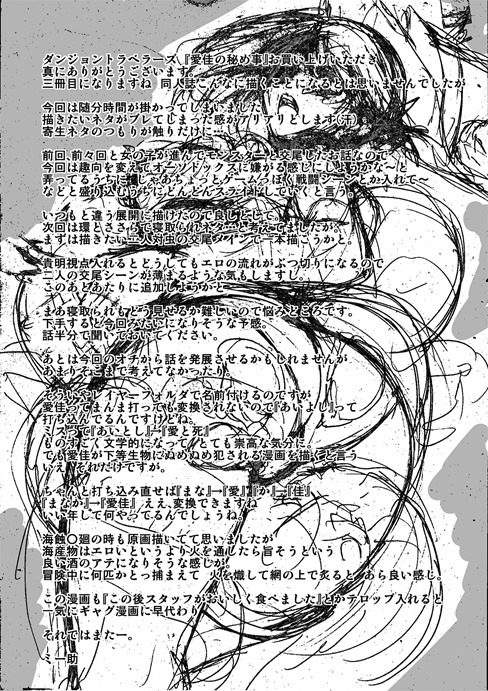 ダンジョントラベラーズ『愛佳の秘め事』お買い上げいただき
真にありがとうございます。
三冊目になりますね 同人誌こんなに描くことになるとは思いませんでしたが
今回は随分時間が掛かってしまいました
描きたいネタがブレてしまった感がアリアリとします(汗)
寄生ネタのつもりが触りだけに…
前回、前々回と女の子が進んでモンスターと交尾したお話なので
今回は趣向を変えてオーソドックスに嫌がる感じにしようかな~と
弄ってるうちに捕し~あちょっとゲームっぽく戦闘シーンとか入れて~
などと盛り込むうちにどんどんスライドしていくと言う
いつもと違う展開に描けたので良しとして。
次回は環とささらで寝取られネタ…と考えてましたが。
まずは描きたい二人対虫の交尾メインで一本描こうかと。
貴明視点入れるとどうしてもエロの流れがぶつ切りになるので
二人の交尾シーンが薄まるような気もしますし。
このあとあたりに追加しようかと
まあ寝取られもどう見せるか難しいので悩みどころです。
下手すると今回みたいになりそうな予感。
話半分で聞いておいてください。
あとは今回のオチから話を発展させるかもしれませんが
あまりそこまで考えてなかったり。
そういやレイヤーフォルダで名前付けるのですが
愛佳ってまんま打っても変換されないので『あいよし』って
打ち込んでるんですけどね。
ミスって『あいとし』→『愛と死』
ものすごく文学的になって とても崇高な気分に。
でも愛佳が下等生物にぬめぬめ犯される漫画を描くと言う
いえ それだけですが。
ちゃんと打ち込み直せば『まな』→『愛』『か』→『佳』
『まなか』→『愛佳』 ええ、変換できますね
いい年して何やってるんでしょうね。
海蝕〇廻の時も原画描いてて思いましたが
海産物はエロいというより火を通したら旨そうという
良い酒のアテになりそうな感じが。
冒険中に何匹かとっ捕まえて 火を熾して網の上で炙ると あら良い感じ。
この漫画も『この後スタッフがおいしく食べました』とかテロップ入れると
一気にギャグ漫画に早代わり
それではまたー。
ミ一助